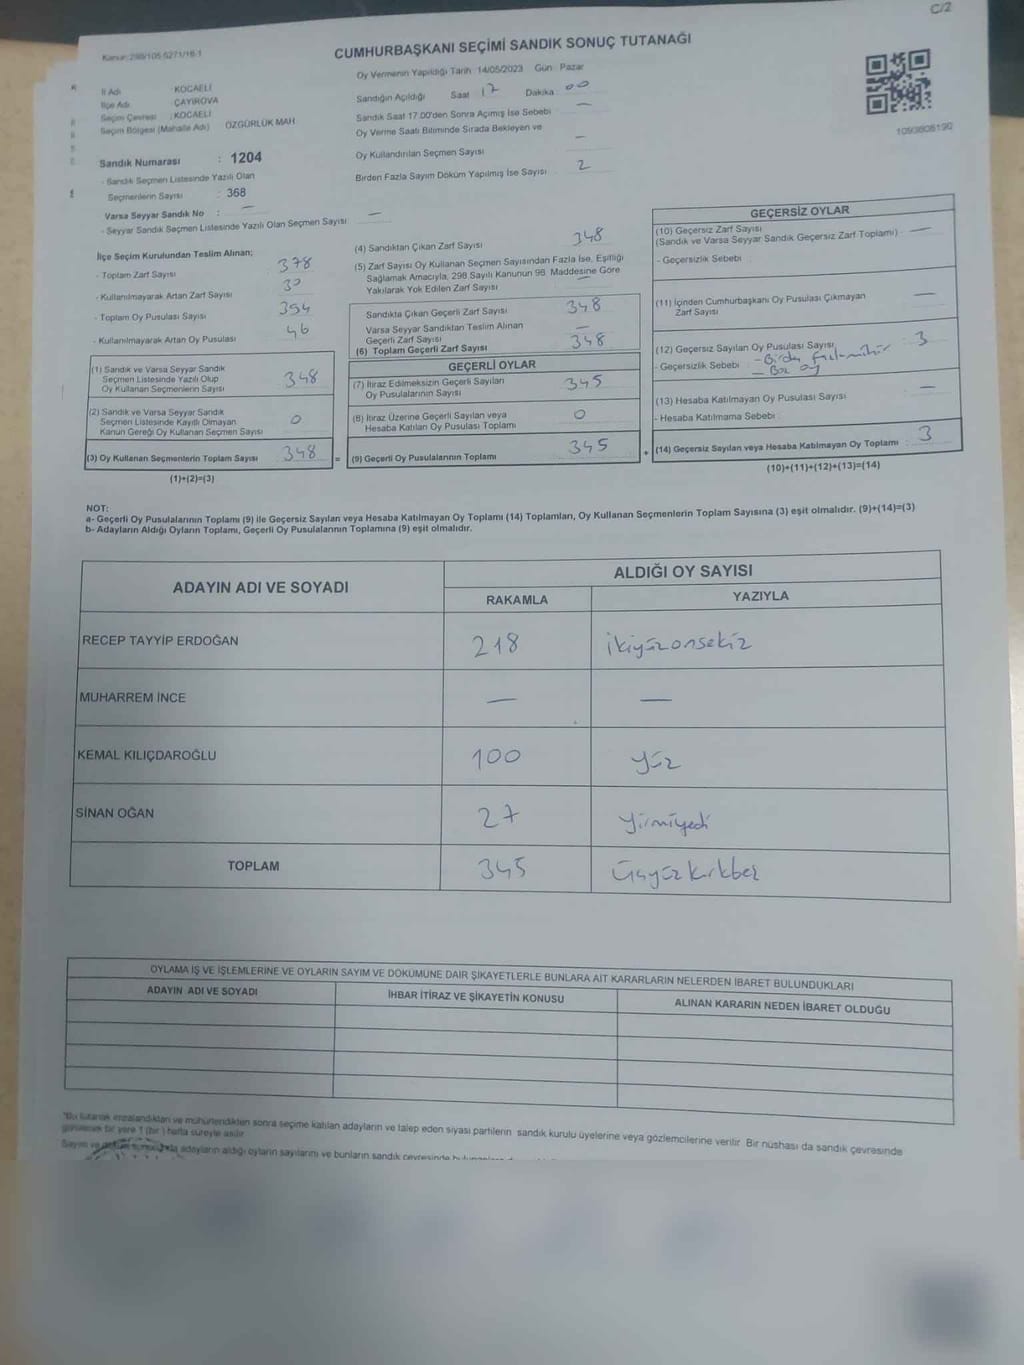 C/2
Kanun:298/105 6271/16-1
CUMHURBAŞKANI SEÇİMİ SANDIK SONUÇ TUTANAĞI
İl Adı : KOCAELİ
İlçe Adı : ÇAYIROVA
Seçim Çevresi : KOCAELİ
Seçim Bölgesi (Mahalle Adı) ÖZGÜRLÜK MAH.
Sandık Numarası : 1204
- Sandık Seçmen Listesinde Yazılı Olan
Seçmenlerin Sayısı : 368
Varsa Seyyar Sandık No : —
- Seyyar Sandık Seçmen Listesinde Yazılı Olan Seçmen Sayısı : —
Oy Vermenin Yapıldığı Tarih : 14/05/2023 Gün : Pazar
Sandığın Açıldığı Saat : 17 Dakika : 00
Sandık Saat 17.00'den Sonra Açımış İse Sebebi : —
Oy Verme Saati Bitiminde Sırada Bekleyen ve
Oy Kullandırılan Seçmen Sayısı : —
Birden Fazla Sayım Döküm Yapılmış İse Sayısı : 2
1093808190
İlçe Seçim Kurulundan Teslim Alınan;
- Toplam Zarf Sayısı : 378
- Kullanılmayarak Artan Zarf Sayısı : 30
- Toplam Oy Pusulası Sayısı : 394
- Kullanılmayarak Artan Oy Pusulası : 46
(1) Sandık ve Varsa Seyyar Sandık
Seçmen Listesinde Yazılı Olup
Oy Kullanan Seçmenlerin Sayısı : 348
(2) Sandık ve Varsa Seyyar Sandık
Seçmen Listesinde Kayıtlı Olmayan
Kanun Gereği Oy Kullanan Seçmen Sayısı : 0
(3) Oy Kullanan Seçmenlerin Toplam Sayısı : 348 =
(1)+(2)=(3)
(4) Sandıktan Çıkan Zarf Sayısı : 348
(5) Zarf Sayısı Oy Kullanan Seçmen Sayısından Fazla İse, Eşitliği
Sağlamak Amacıyla, 298 Sayılı Kanunun 98. Maddesine Göre
Yakılarak Yok Edilen Zarf Sayısı : —
Sandıkta Çıkan Geçerli Zarf Sayısı : 348
Varsa Seyyar Sandıktan Teslim Alınan
Geçerli Zarf Sayısı : —
(6) Toplam Geçerli Zarf Sayısı : 348
GEÇERLİ OYLAR
(7) İtiraz Edilmeksizin Geçerli Sayılan
Oy Pusulalarının Sayısı : 345
(8) İtiraz Üzerine Geçerli Sayılan veya
Hesaba Katılan Oy Pusulası Toplamı : 0
(9) Geçerli Oy Pusulalarının Toplamı : 345 +
GEÇERSİZ OYLAR
(10) Geçersiz Zarf Sayısı
(Sandık ve Varsa Seyyar Sandık Geçersiz Zarf Toplamı) : —
- Geçersizlik Sebebi :
(11) İçinden Cumhurbaşkanı Oy Pusulası Çıkmayan
Zarf Sayısı : —
(12) Geçersiz Sayılan Oy Pusulası Sayısı : 3
- Geçersizlik Sebebi : - Birden fazla mühür
- Boz oy
(13) Hesaba Katılmayan Oy Pusulası Sayısı : —
- Hesaba Katılmama Sebebi :
(14) Geçersiz Sayılan veya Hesaba Katılmayan Oy Toplamı : 3
(10)+(11)+(12)+(13)=(14)
NOT:
a- Geçerli Oy Pusulalarının Toplamı (9) ile Geçersiz Sayılan veya Hesaba Katılmayan Oy Toplamı (14) Toplamları, Oy Kullanan Seçmenlerin Toplam Sayısına (3) eşit olmalıdır. (9)+(14)=(3)
b- Adayların Aldığı Oyların Toplamı, Geçerli Oy Pusulalarının Toplamına (9) eşit olmalıdır.
ADAYIN ADI VE SOYADI
ALDIĞI OY SAYISI
RAKAMLA YAZIYLA
RECEP TAYYİP ERDOĞAN 218 ikiyüzonsekiz
MUHARREM İNCE — —
KEMAL KILIÇDAROĞLU 100 yüz
SİNAN OĞAN 27 yirmiyedi
TOPLAM 345 üçyüzkırkbeş
OYLAMA İŞ VE İŞLEMLERİNE VE OYLARIN SAYIM VE DÖKÜMÜNE DAİR ŞİKAYETLERLE BUNLARA AİT KARARLARIN NELERDEN İBARET BULUNDUKLARI
ADAYIN ADI VE SOYADI İHBAR İTİRAZ VE ŞİKAYETİN KONUSU ALINAN KARARIN NEDEN İBARET OLDUĞU
*Bu tutanak imzalandıktan ve mühürlendikten sonra seçime katılan adayların ve talep eden siyasi partilerin sandık kurulu üyelerine veya gözlemcilerine verilir. Bir nüshası da sandık çevresinde
görülecek bir yere 1 (bir) hafta süreyle asılır.
Sayım ve adayların aldığı oyların sayılarını ve bunların sandık çevresinde